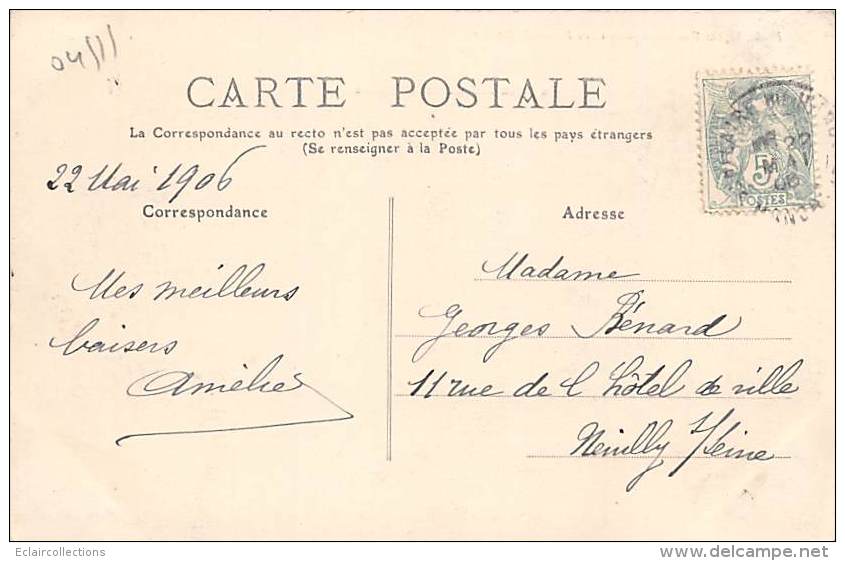 04111
CARTE POSTALE
La Correspondance au recto n'est pas acceptée par tous les pays étrangers
(Se renseigner à la Poste)
22 Mai 1906
Correspondance
Mes meilleurs
baisers
Amélie
Adresse
Madame
Georges Bénard
11 rue de l'hôtel de ville
Neuilly s/Seine
5
POSTES
MAI
06
Eclaircollections
www.delcampe.net